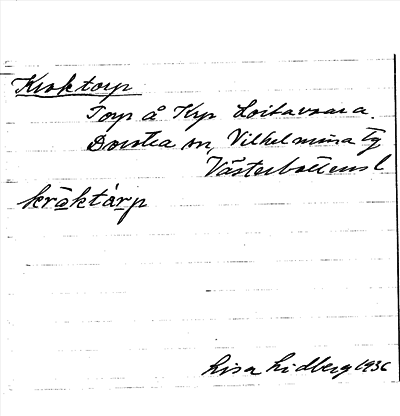 Kroktorp
Torp å Krp Loitavaara.
Dorotea sn, Vilhelmina tg
Västerbottens l
kråktårp
Lisa Lidberg 1936